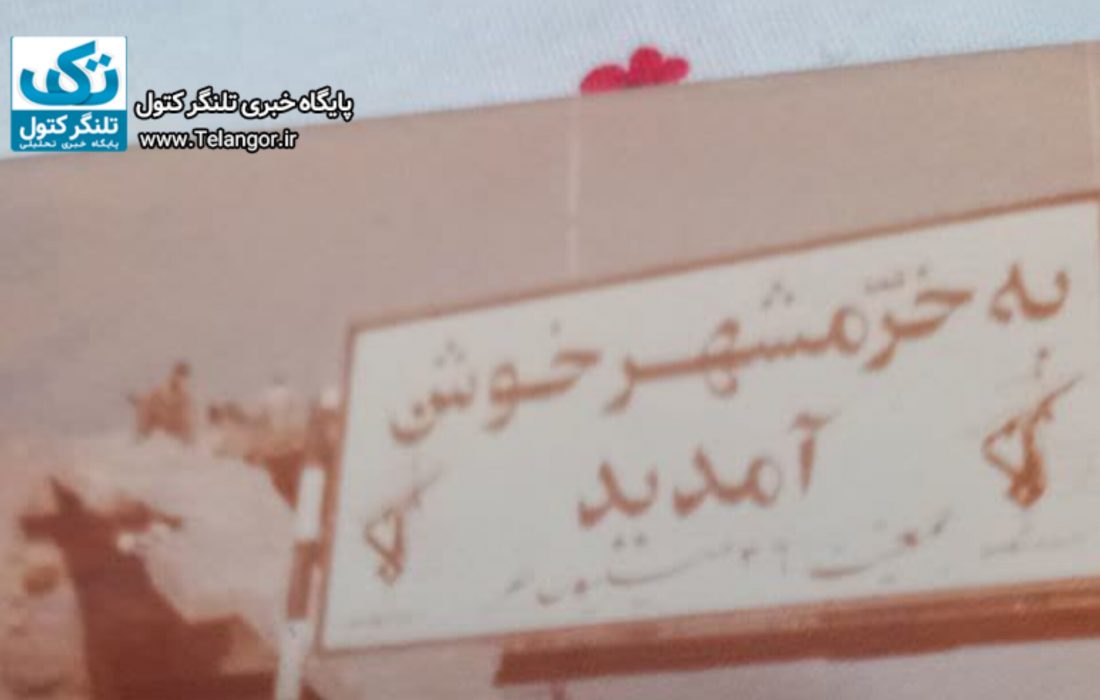 تک
تلنگر کتول
پایگاه خبری تحلیلی
پایگاه خبری تلنگر کتول
www.Telangor.ir
به خرّمشهر خوش
آمدید
جمعیت ۳۶ میلیون نفر